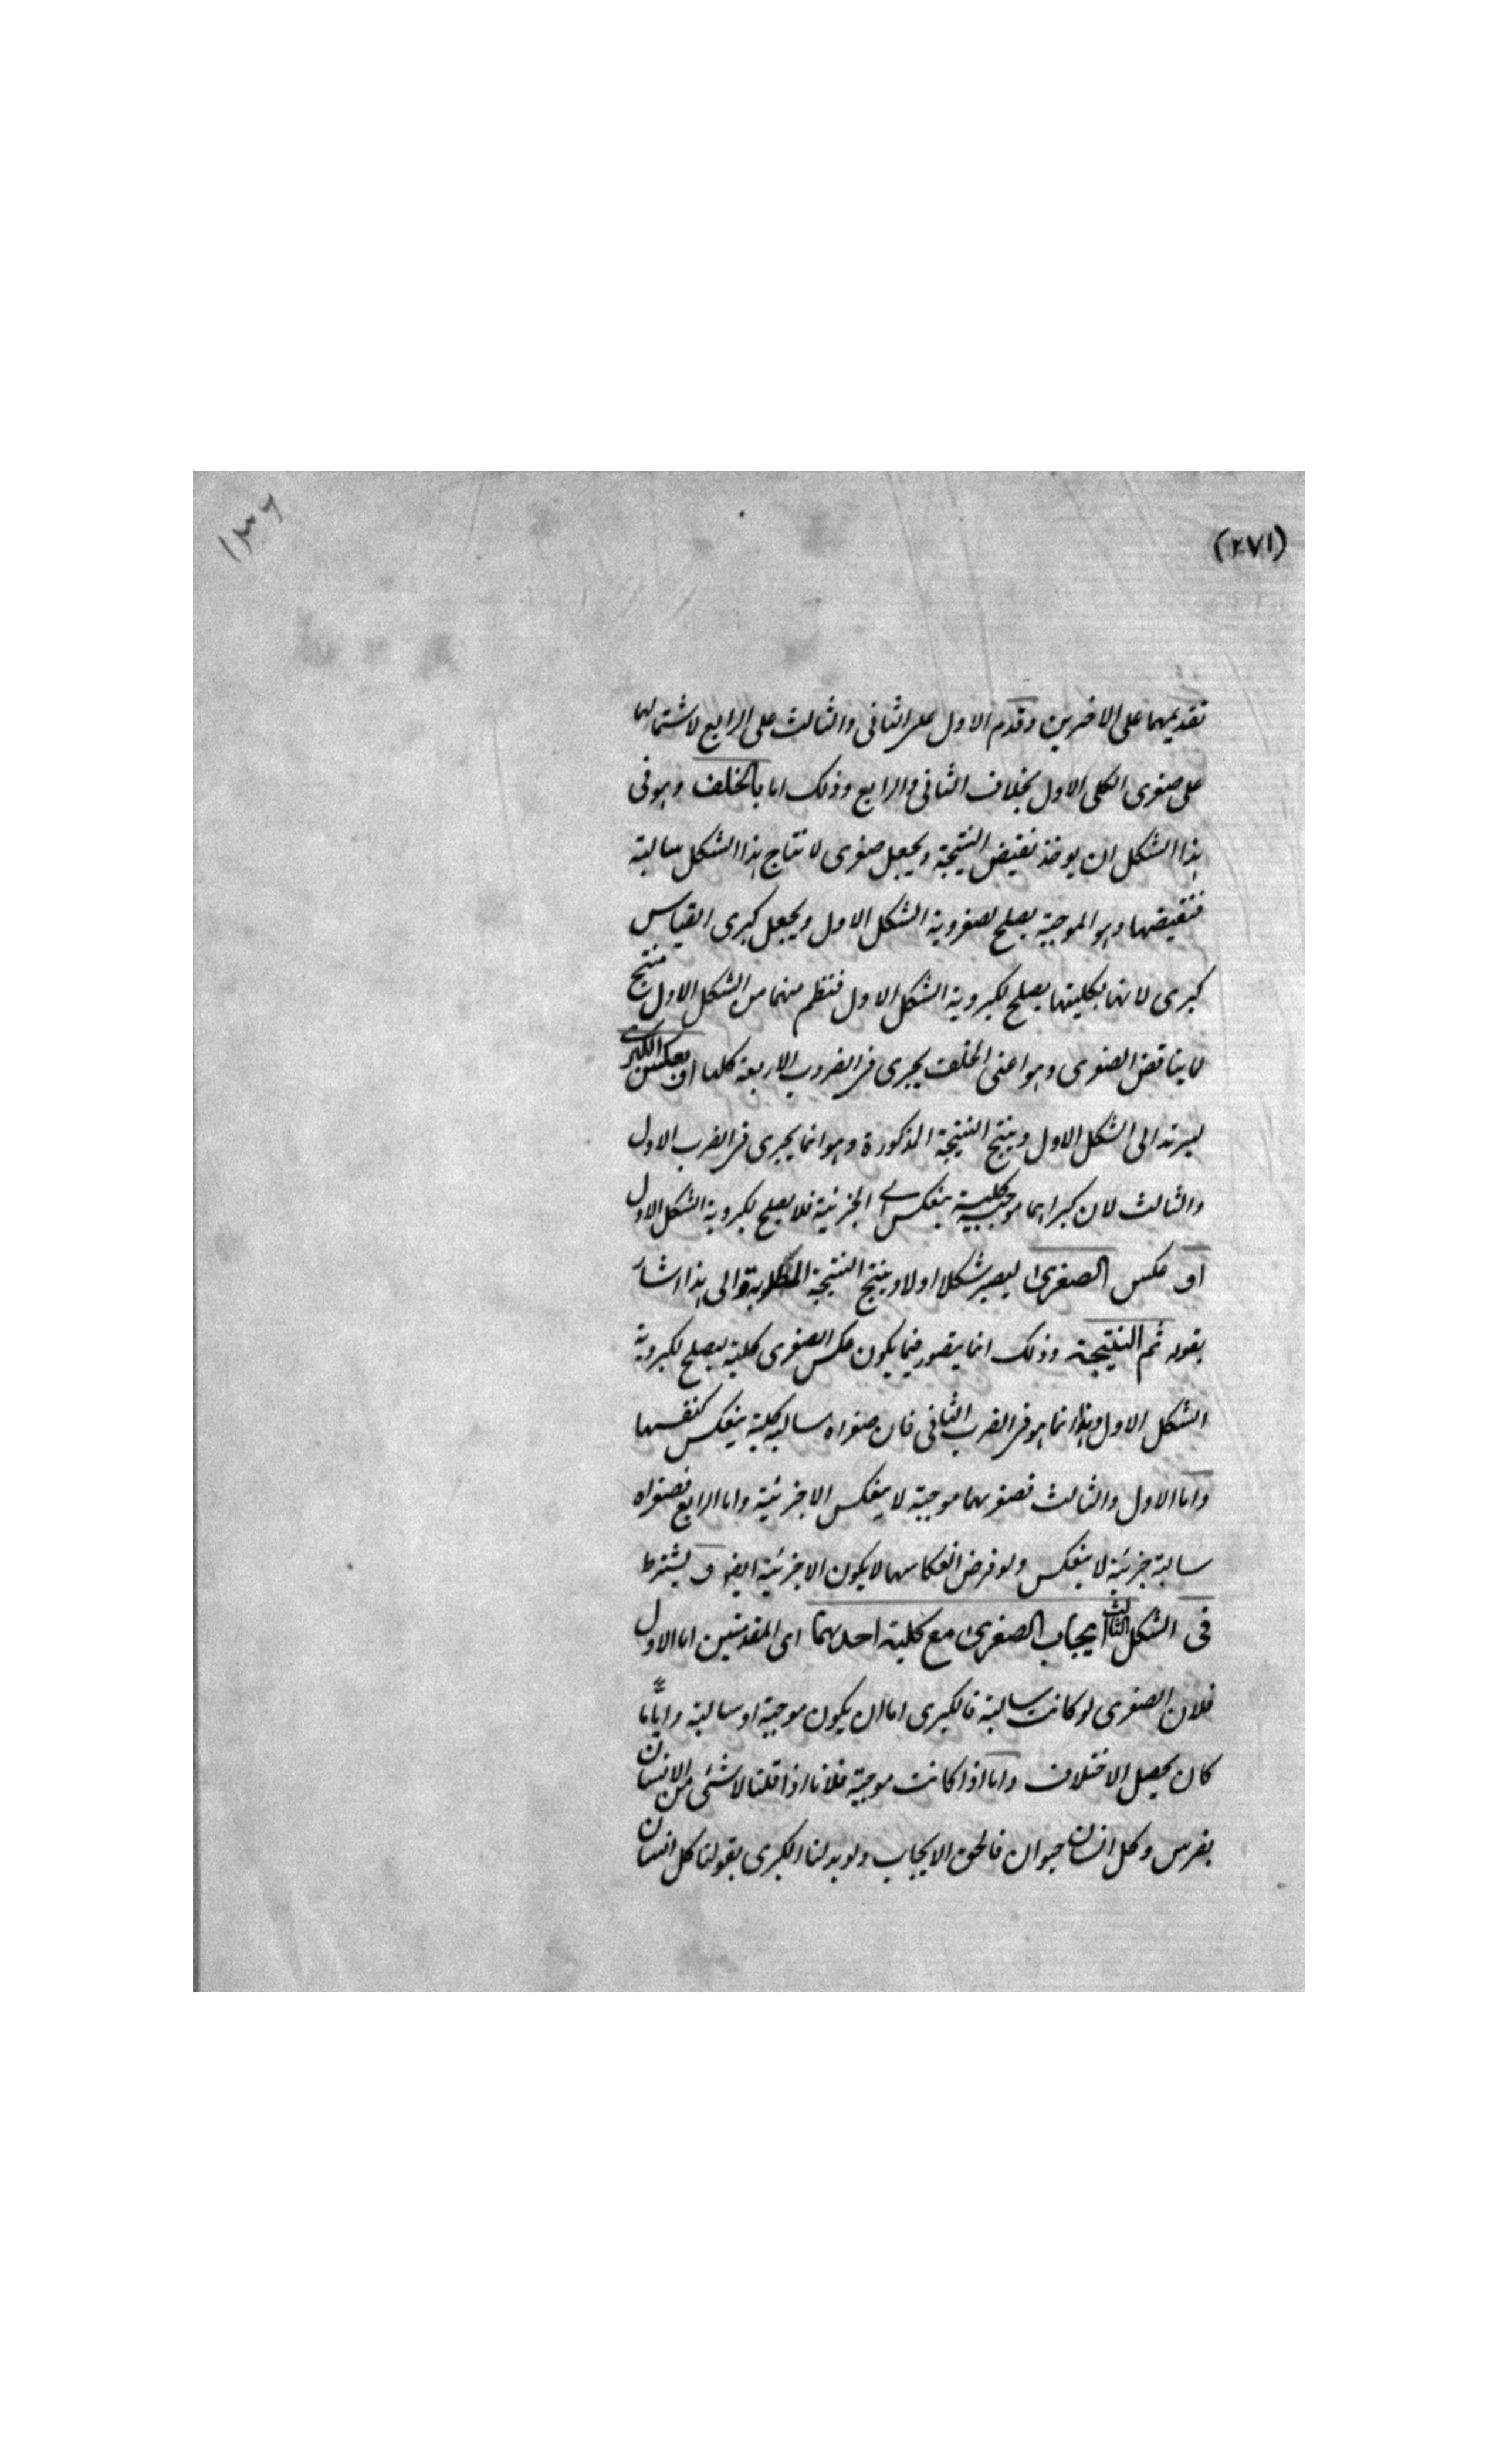 (٢٧١)
١٣٦
تقديمهما على الاخرين وقدم الاول على الثانى والثالث على الرابع لاشتمالهما
على صغرى الكلى الاول بخلاف الثانى والرابع وذلك اما بالخلف وهو فى
هذا الشكل ان يوخذ نقيض النتيجة ويجعل صغرى لانتاج هذا الشكل سالبة
فنقيضها وهو الموجبة يصلح لصغروية الشكل الاول ويجعل كبرى القياس
كبرى لانها بكليتها يصلح لكبروية الشكل الاول فنتظم منهما من الشكل الاول منتج
لما يناقض الصغرى وهو اعنى الخلف يجرى فى الضروب الاربعة كلها او بعكس الكبرى
ليرتد الى الشكل الاول وينتج النتيجة المذكورة وهو انما يجرى فى الضرب الاول
والثالث لان كبراهما موجبة كلية ينعكس الى الجزئية فلا يصلح لكبروية الشكل الاول
او عكس الصغرى ليصير شكلا اولا وينتج النتيجة المطلوبة والى هذا اشار
بقوله ثم النتيجة وذلك انما يتصور فيما يكون عكس الصغرى كلية ليصلح لكبروية
الشكل الاول وهذا انما هو فى الضرب الثانى فان صغراه سالبة كلية ينعكس كنفسها
واما الاول والثالث فصغريهما موجبة لا ينعكس الا جزئية واما الرابع فصغراه
سالبة جزئية لا ينعكس ولو فرض انعكاسها لا يكون الا جزئية ايضا و يشترط
فى الشكل الثالث ايجاب الصغرى مع كلية احدهما اى المقدمتين اما الاول
فلان الصغرى لو كانت سالبة فالكبرى اما ان يكون موجبة او سالبة وايّاما
كان يحصل الاختلاف واما اذا كانت موجبة فلانا اذا قلنا لا شئى من الانسان
بفرس وكل انسان حيوان فالحق الايجاب ولو بدلنا الكبرى بقولنا كل انسان